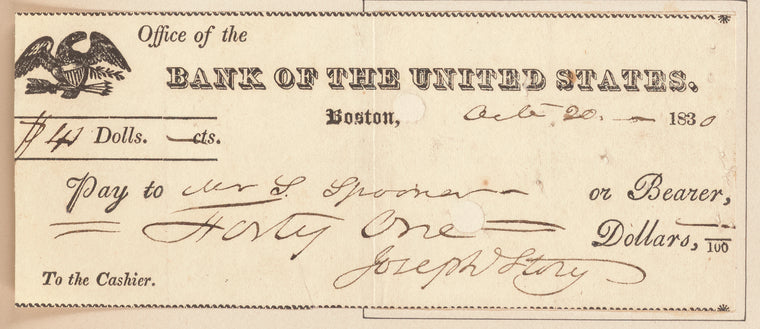 Office of the
BANK OF THE UNITED STATES.
Boston, Octr 20. — 1830
$41 Dolls. — cts.
Pay to Mr S. Spooner — or Bearer,
= Forty One = Dollars, —/100
Joseph Story
To the Cashier.